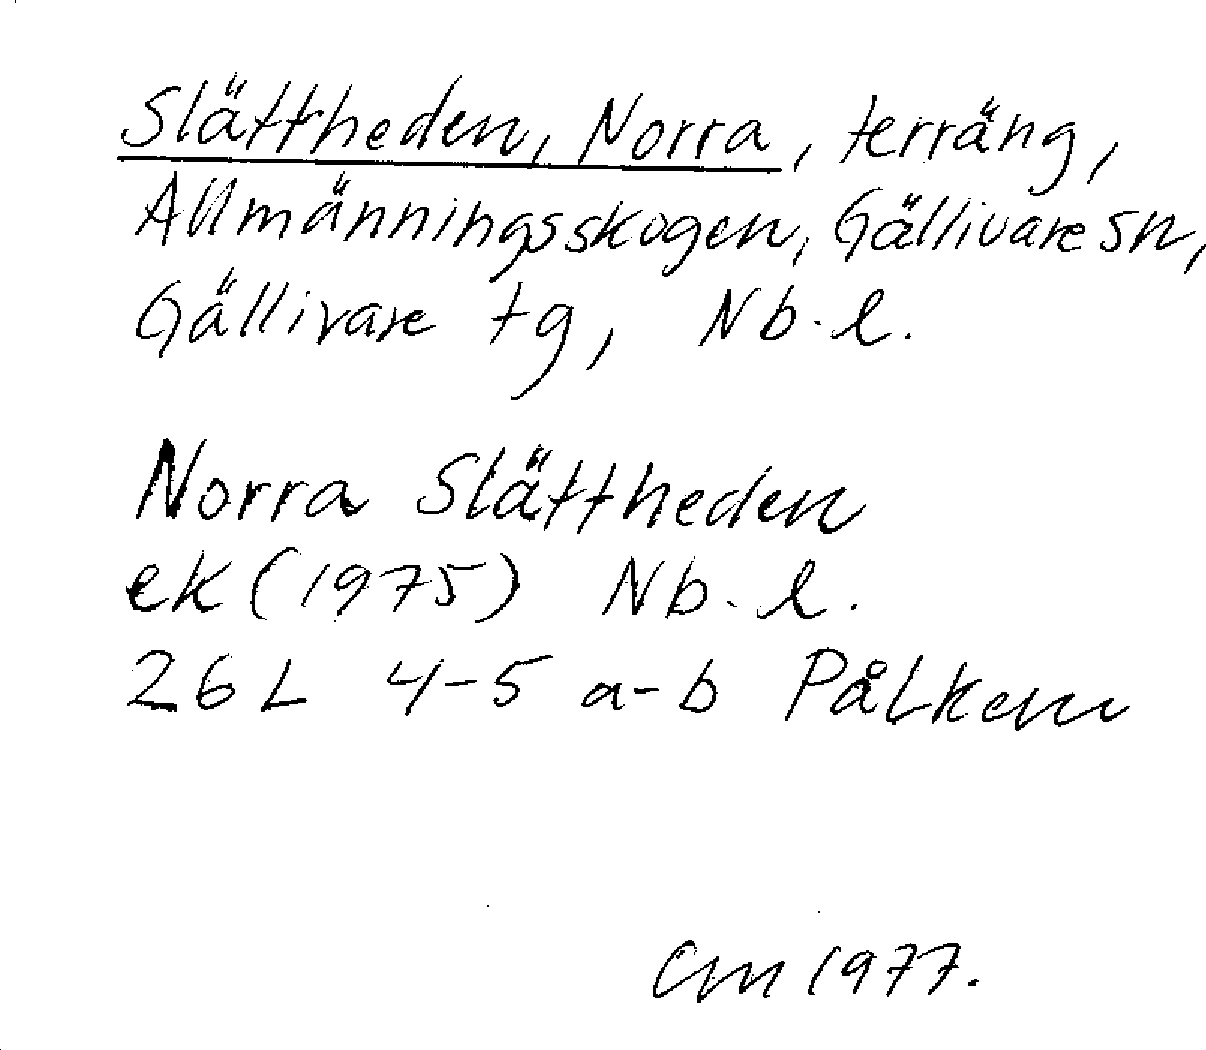 Slättheden, Norra, terräng,
Allmänningsskogen, Gällivare sn,
Gällivare tg, Nb. l.
Norra Slättheden
ek (1975) Nb. l.
26 L 4-5 a-b Pålkem
CM 1977.